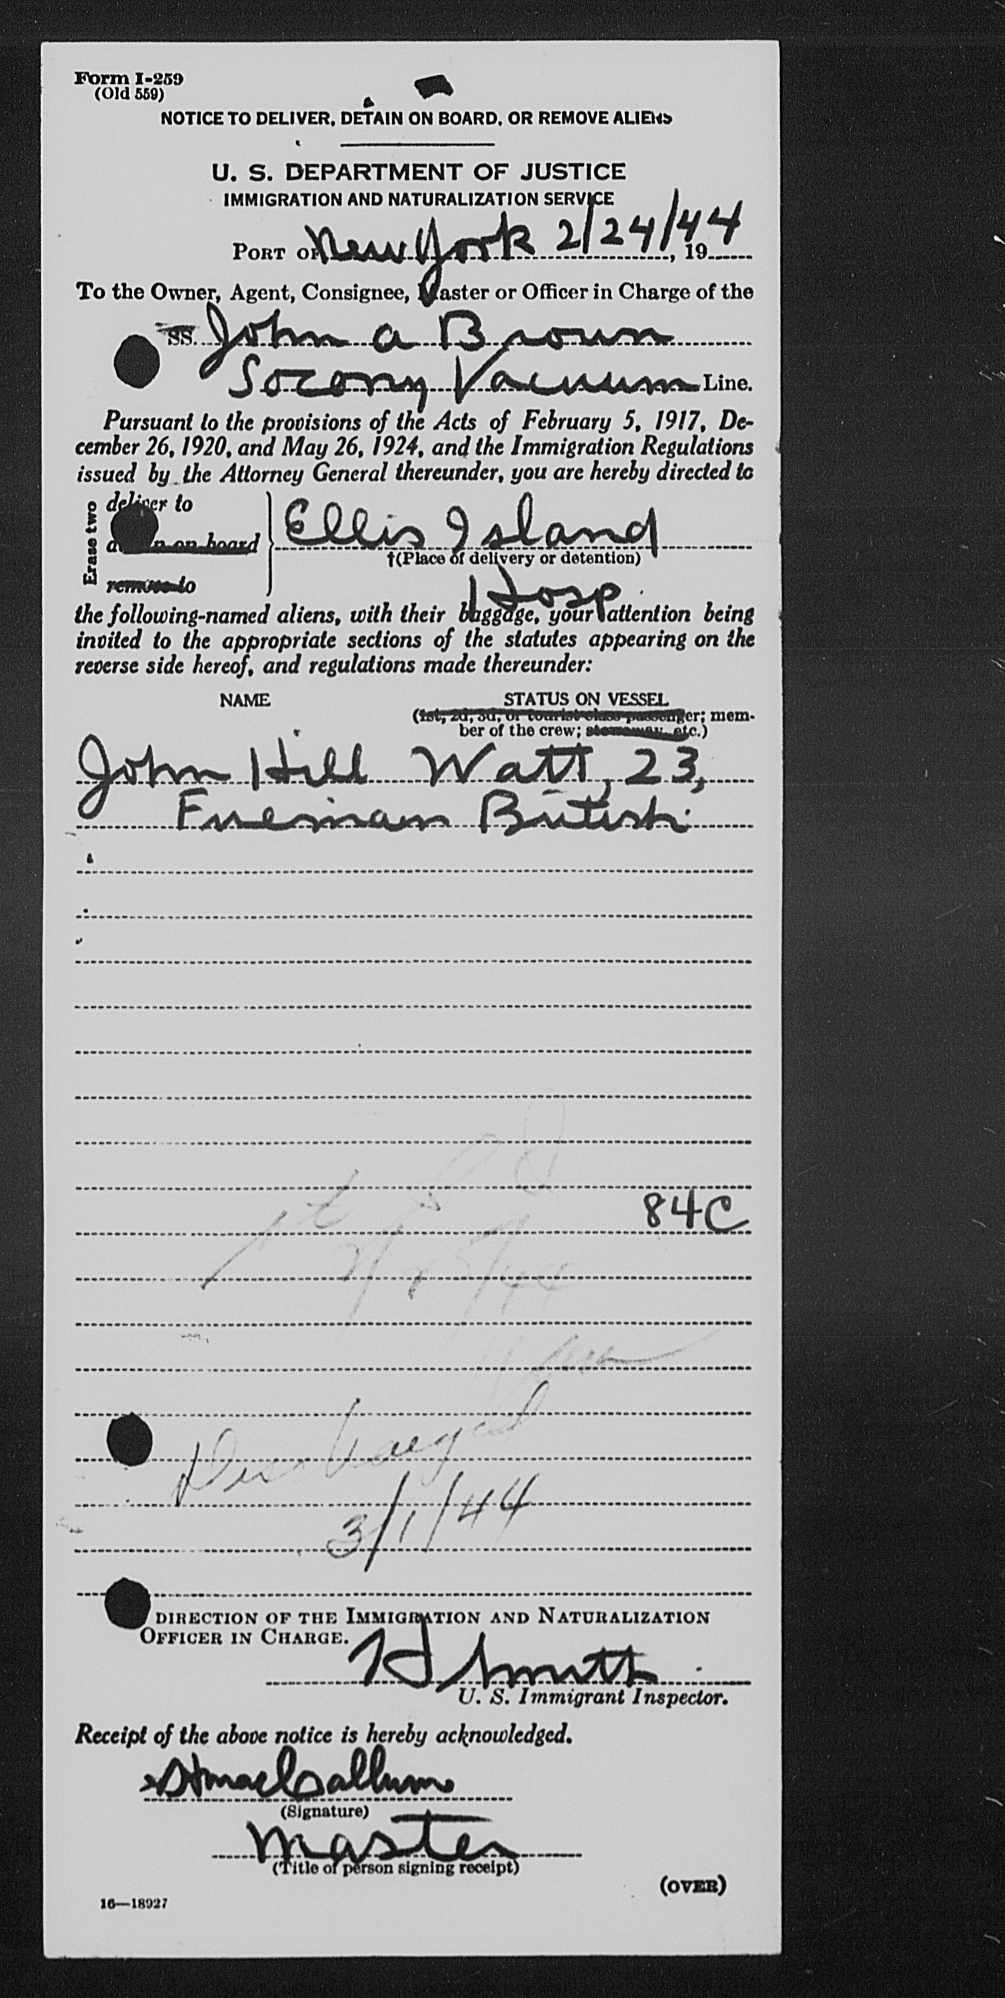 Form I-259
(Old 559)
NOTICE TO DELIVER, DETAIN ON BOARD, OR REMOVE ALIENS
U. S. DEPARTMENT OF JUSTICE
IMMIGRATION AND NATURALIZATION SERVICE
PORT OF New York 2/24/44, 19
To the Owner, Agent, Consignee, Master or Officer in Charge of the
SS. John A Brown
Socony Vacuum Line.
Pursuant to the provisions of the Acts of February 5, 1917, De-
cember 26, 1920, and May 26, 1924, and the Immigration Regulations
issued by the Attorney General thereunder, you are hereby directed to
Erase two
deliver to
on board
remove to
Ellis Island
†(Place of delivery or detention)
Hosp.
the following-named aliens, with their baggage, your attention being
invited to the appropriate sections of the statutes appearing on the
reverse side hereof, and regulations made thereunder:
NAME STATUS ON VESSEL
(1st, 2d, 3d, or tourist class passenger; mem-
ber of the crew; stowaway, etc.)
John Hill Watt, 23,
Fireman British
84C
Discharged
3/1/44
DIRECTION OF THE IMMIGRATION AND NATURALIZATION
OFFICER IN CHARGE.
H Smith
U. S. Immigrant Inspector.
Receipt of the above notice is hereby acknowledged.
MacCallum
(Signature)
Master
(Title of person signing receipt)
(OVER)
16—18927